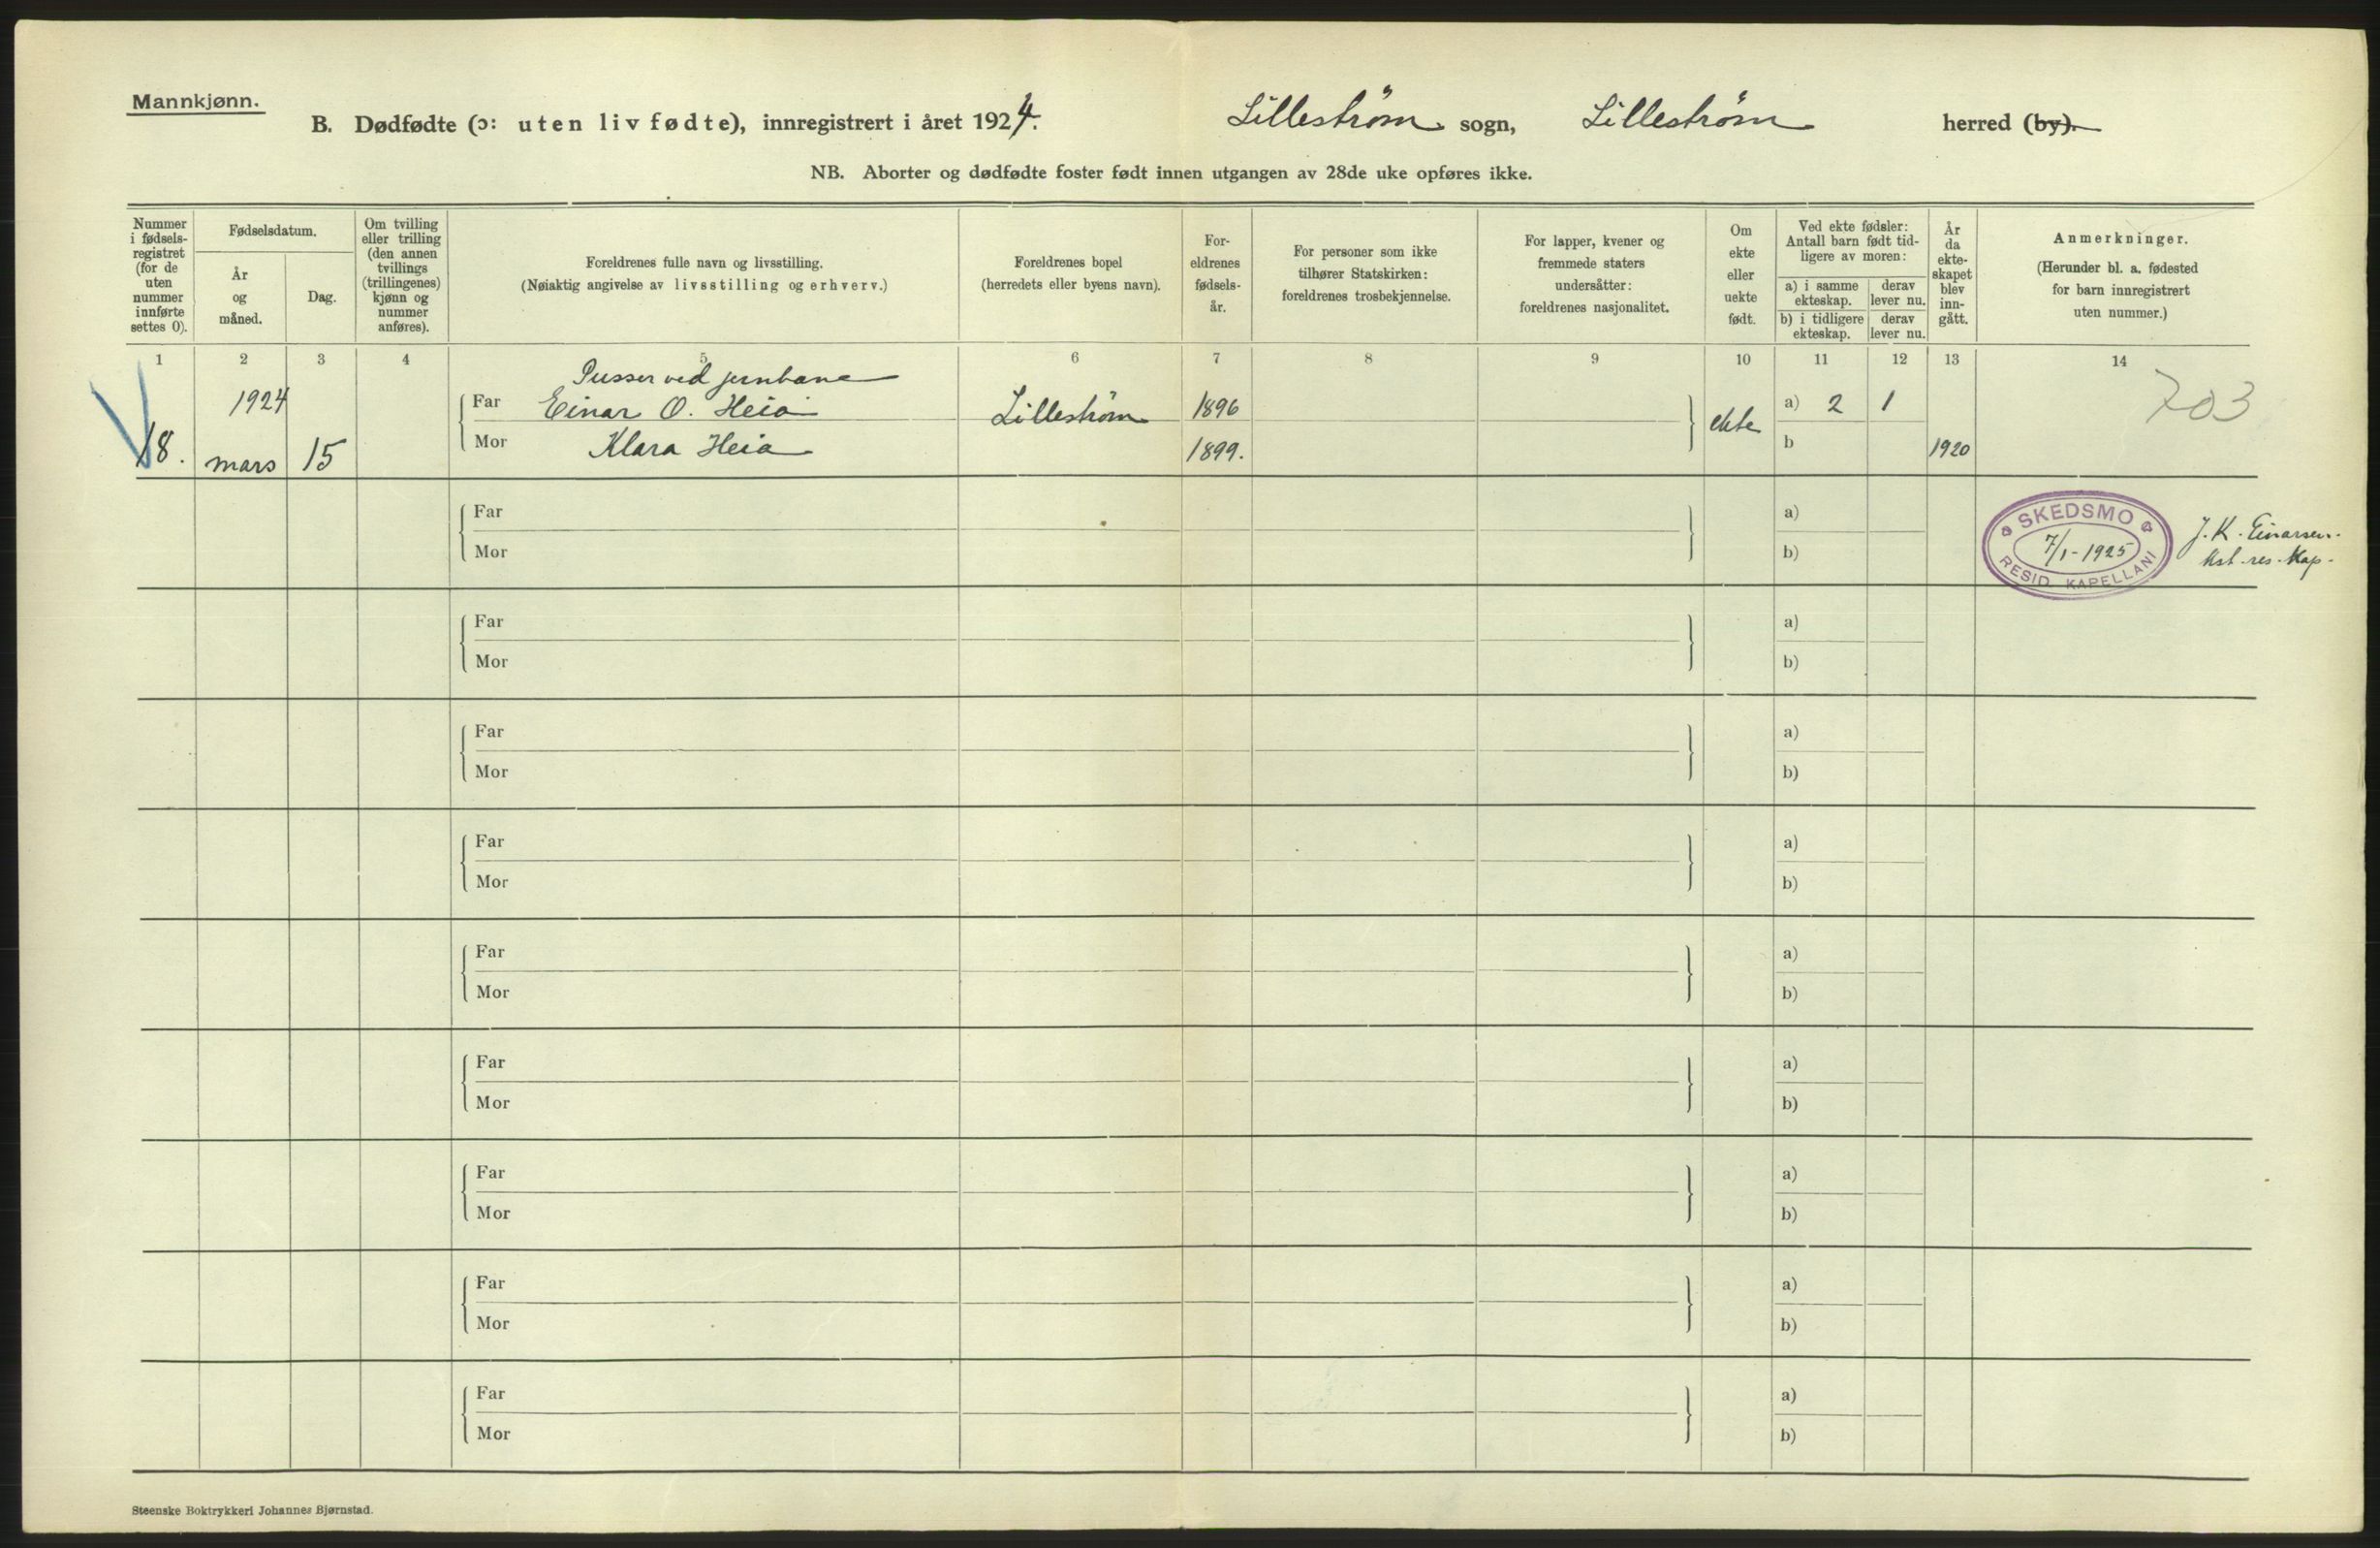 Mannkjønn.
B. Dødfødte (ɔ: uten liv fødte), innregistrert i året 1924. Lillestrøm sogn, Lillestrøm herred (by).
NB. Aborter og dødfødte foster født innen utgangen av 28de uke opføres ikke.
Nummer
i fødsels-
registret
(for de
uten
nummer
innførte
settes 0).
Fødselsdatum.
År
og
måned.
Dag.
Om tvilling
eller trilling
(den annen
tvillings
(trillingenes)
kjønn og
nummer
anføres).
Foreldrenes fulle navn og livsstilling.
(Nøiaktig angivelse av livsstilling og erhverv.)
Foreldrenes bopel
(herredets eller byens navn).
For-
eldrenes
fødsels-
år.
For personer som ikke
tilhører Statskirken:
foreldrenes trosbekjennelse.
For lapper, kvener og
fremmede staters
undersåtter:
foreldrenes nasjonalitet.
Om
ekte
eller
uekte
født.
Ved ekte fødsler:
Antall barn født tid-
ligere av moren:
a) i samme
ekteskap.
derav
lever nu.
b) i tidligere
ekteskap.
derav
lever nu.
År
da
ekte-
skapet
blev
inn-
gått.
Anmerkninger.
(Herunder bl. a. fødested
for barn innregistrert
uten nummer.)
1 2 3 4 5 6 7 8 9 10 11 12 13 14
Pusser ved jernbane
1924 Far Einar O. Heia Lillestrøm 1896 ekte a) 2 1 703
18. mars 15 Mor Klara Heia 1899. b 1920
Far a)
Mor b)
SKEDSMO
7/1-1925
RESID. KAPELLANI
J. K. Einarsen.
Kst. res. Kap.
Far a)
Mor b)
Far a)
Mor b)
Far a)
Mor b)
Far a)
Mor b)
Far a)
Mor b)
Far a)
Mor b)
Far a)
Mor b)
Far a)
Mor b)
Steenske Boktrykkeri Johannes Bjørnstad.